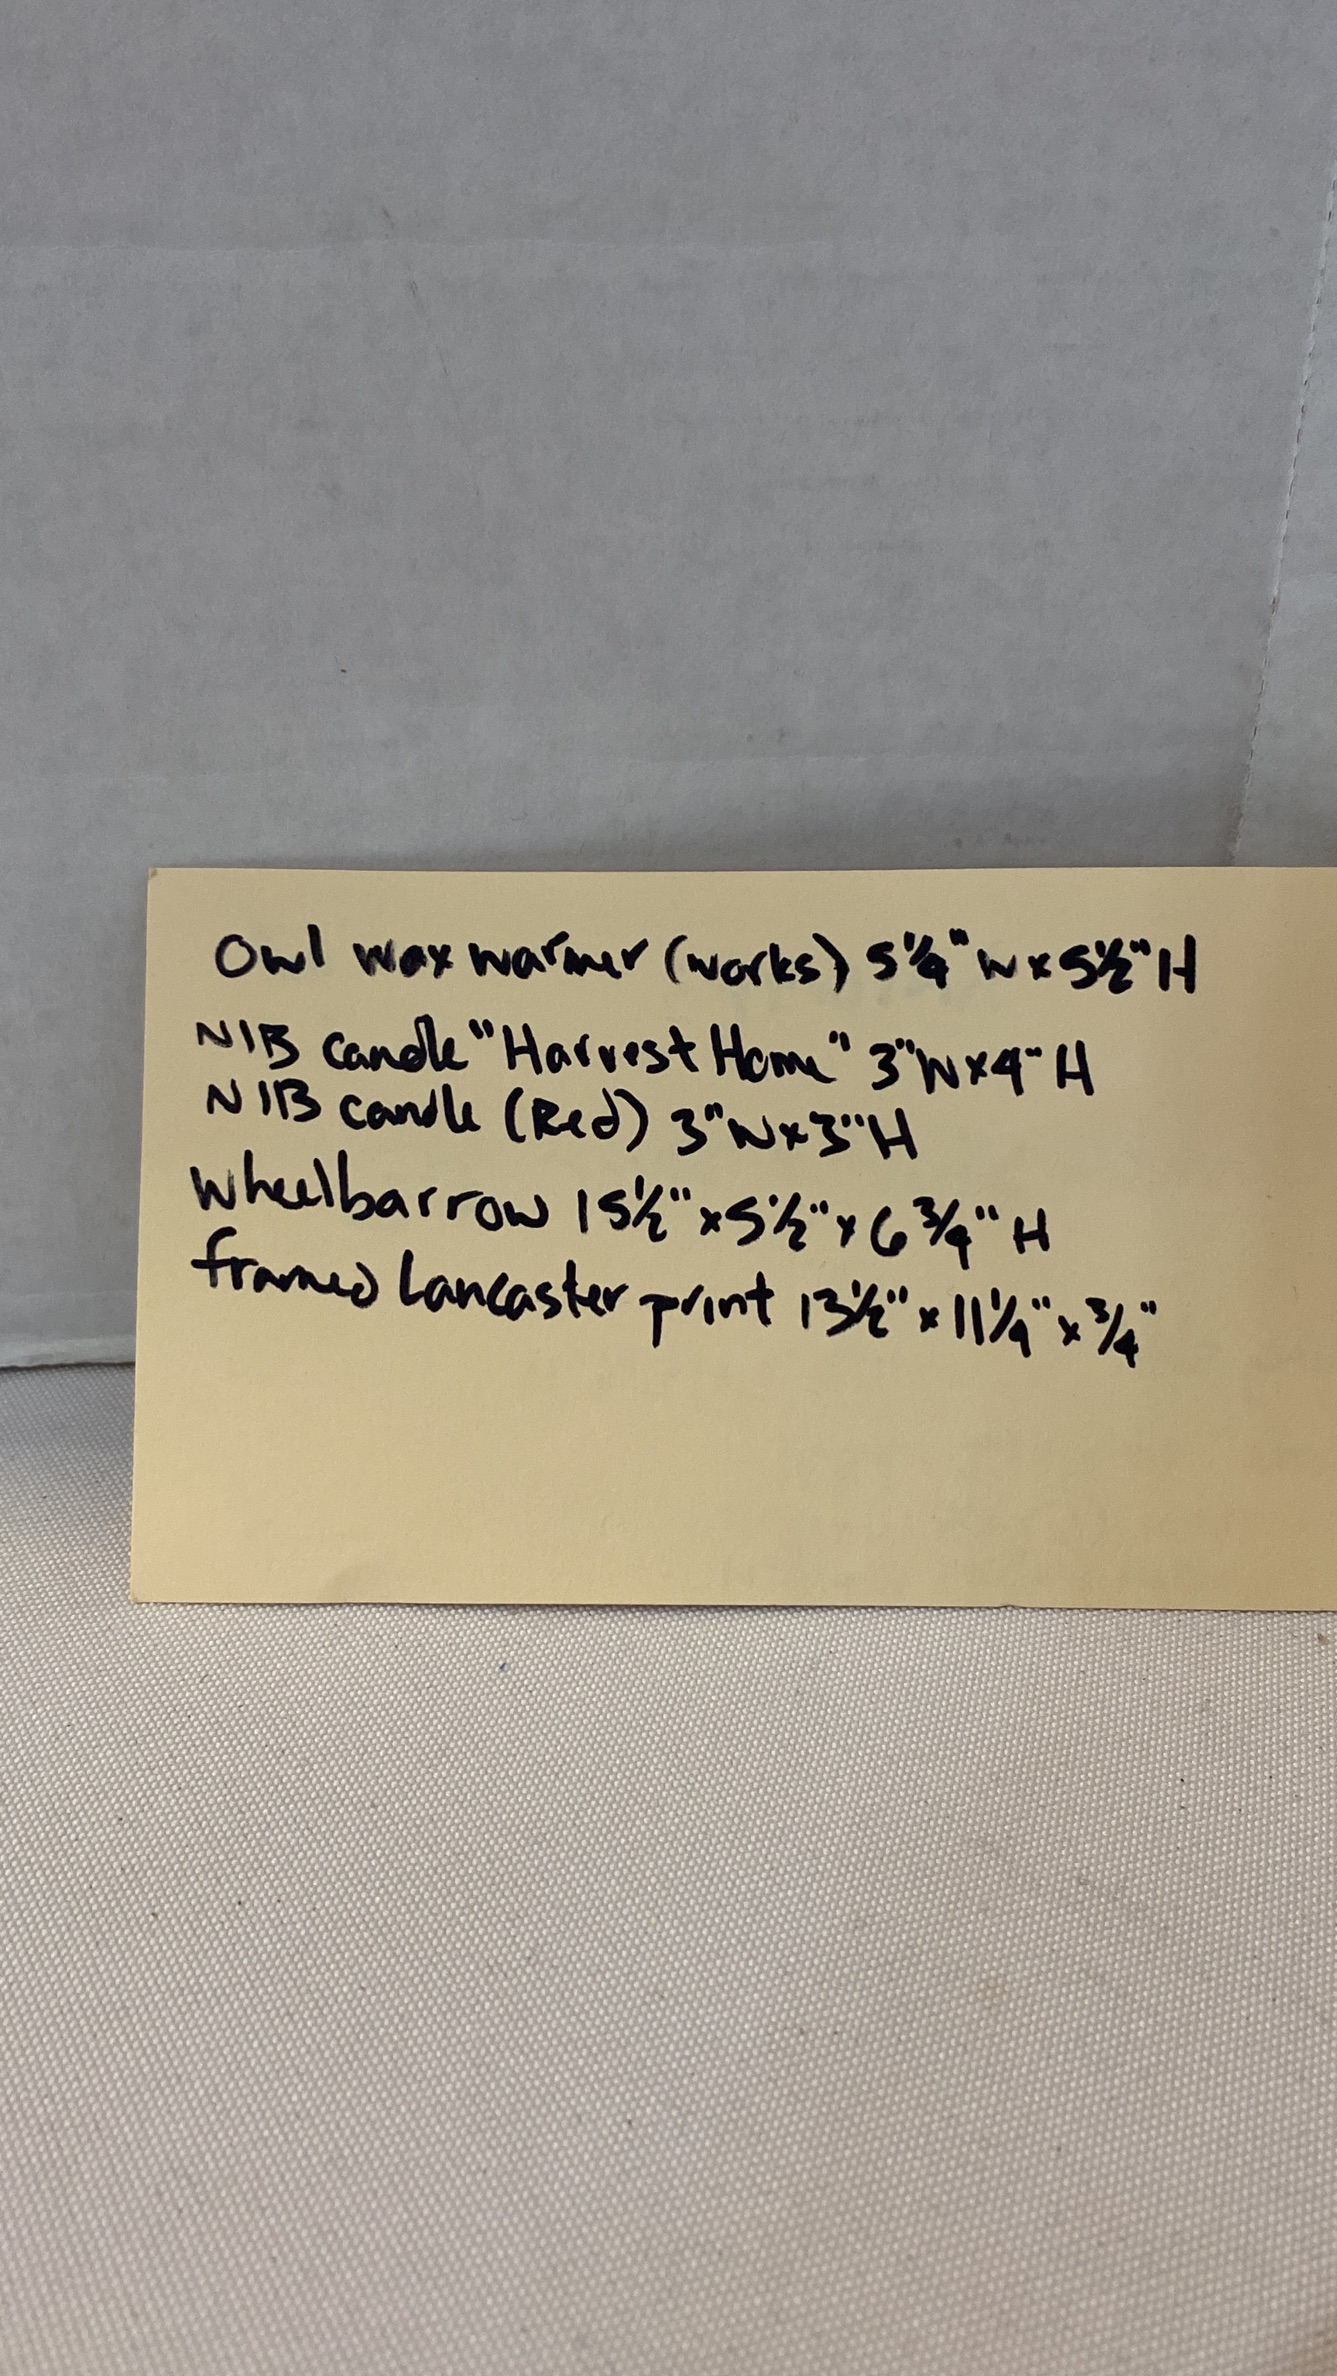 Owl wax warmer (works) 5 1/4" W x 5 1/2" H
NIB candle "Harvest Home" 3" W x 4" H
NIB candle (Red) 3" W x 3" H
Wheelbarrow 15 1/2" x 5 1/2" x 6 3/4" H
framed Lancaster print 13 1/2" x 11 1/4" x 3/4"